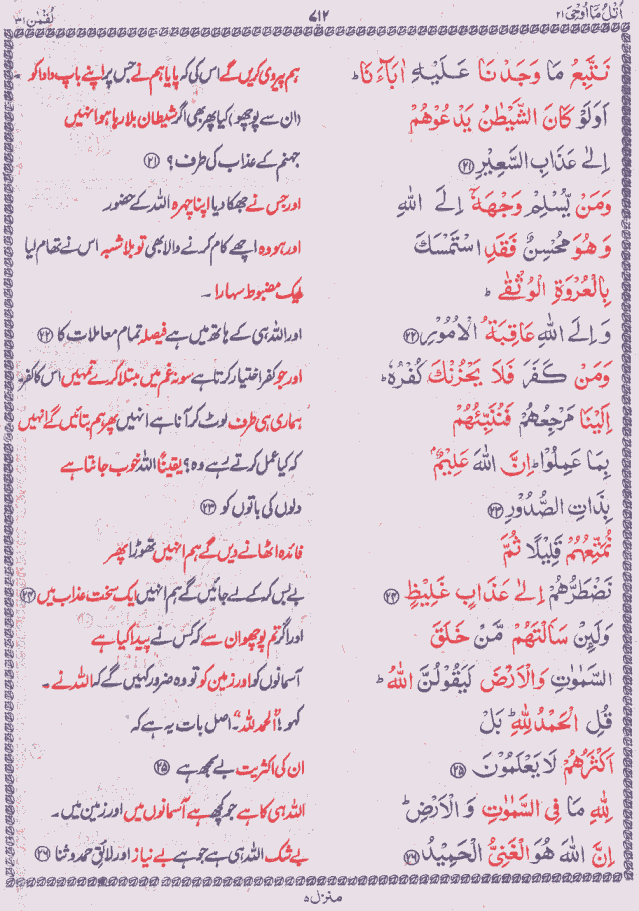 اُتْلُ مَا اُوْحِیَ ۲۱ ۷۱۲ لُقْمٰن ۳۱
نَتَّبِعُ مَا وَجَدْنَا عَلَيْهِ اٰبَآءَنَا ؕ ہم پیروی کریں گے اس کی کہ پایا ہم نے جس پر اپنے باپ دادا کو ۔
اَوَلَوْ كَانَ الشَّيْطٰنُ يَدْعُوْهُمْ (ان سے پوچھو) کیا پھر بھی اگر شیطان بلا رہا ہو انہیں
اِلٰى عَذَابِ السَّعِيْرِ ۝۲۱ جہنم کے عذاب کی طرف؟ ۝۲۱
وَمَنْ يُّسْلِمْ وَجْهَهٗۤ اِلَى اللّٰهِ اور جس نے جھکا دیا اپنا چہرہ اللہ کے حضور
وَهُوَ مُحْسِنٌ فَقَدِ اسْتَمْسَكَ اور ہو وہ اچھے کام کرنے والا بھی تو بلا شبہ اس نے تھام لیا
بِالْعُرْوَةِ الْوُثْقٰى ؕ ایک مضبوط سہارا ۔
وَاِلَى اللّٰهِ عَاقِبَةُ الْاُمُوْرِ ۝۲۲ اور اللہ ہی کے ہاتھ میں ہے فیصلہ تمام معاملات کا ۝۲۲
وَمَنْ كَفَرَ فَلَا يَحْزُنْكَ كُفْرُهٗ ؕ اور جو کفر اختیار کرتا ہے سو نہ غم میں مبتلا کرے تمہیں اس کا کفر
اِلَيْنَا مَرْجِعُهُمْ فَنُنَبِّئُهُمْ ہماری ہی طرف لوٹ کر آنا ہے انہیں پھر ہم بتائیں گے انہیں
بِمَا عَمِلُوْا ؕ اِنَّ اللّٰهَ عَلِيْمٌۢ کہ کیا عمل کرتے رہے وہ؟ یقیناً اللہ خوب جانتا ہے
بِذَاتِ الصُّدُوْرِ ۝۲۳ دلوں کی باتوں کو ۝۲۳
نُمَتِّعُهُمْ قَلِيْلًا ثُمَّ فائدہ اٹھانے دیں گے ہم انہیں تھوڑا پھر
نَضْطَرُّهُمْ اِلٰى عَذَابٍ غَلِيْظٍ ۝۲۴ بے بس کر کے لے جائیں گے ہم انہیں ایک سخت عذاب میں ۝۲۴
وَلَئِنْ سَاَلْتَهُمْ مَّنْ خَلَقَ اور اگر تم پوچھو ان سے کہ کس نے پیدا کیا ہے
السَّمٰوٰتِ وَالْاَرْضَ لَيَقُوْلُنَّ اللّٰهُ ؕ آسمانوں کو اور زمین کو تو وہ ضرور کہیں گے کہ اللہ نے ۔
قُلِ الْحَمْدُ لِلّٰهِ ؕ بَلْ کہو! "الحمد للہ"۔ اصل بات یہ ہے کہ
اَكْثَرُهُمْ لَا يَعْلَمُوْنَ ۝۲۵ ان کی اکثریت بے سمجھ ہے ۝۲۵
لِلّٰهِ مَا فِى السَّمٰوٰتِ وَالْاَرْضِ ؕ اللہ ہی کا ہے جو کچھ ہے آسمانوں میں اور زمین میں ۔
اِنَّ اللّٰهَ هُوَ الْغَنِىُّ الْحَمِيْدُ ۝۲۶ بے شک اللہ ہی ہے جو ہے بے نیاز اور لائق حمد و ثنا ۝۲۶
منزل ۵